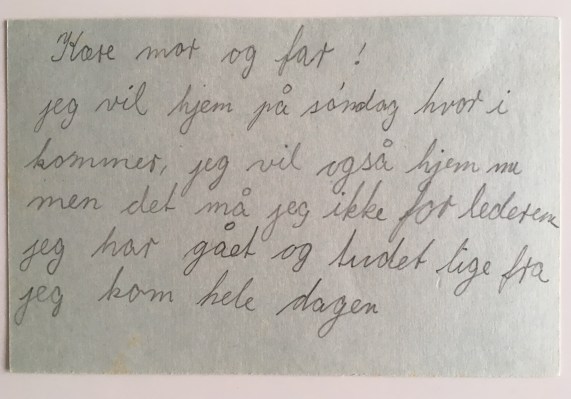 Kære mor og far !
jeg vil hjem på søndag hvor i
kommer, jeg vil også hjem nu
men det må jeg ikke for lederen
jeg har gået og tudet lige fra
jeg kom hele dagen